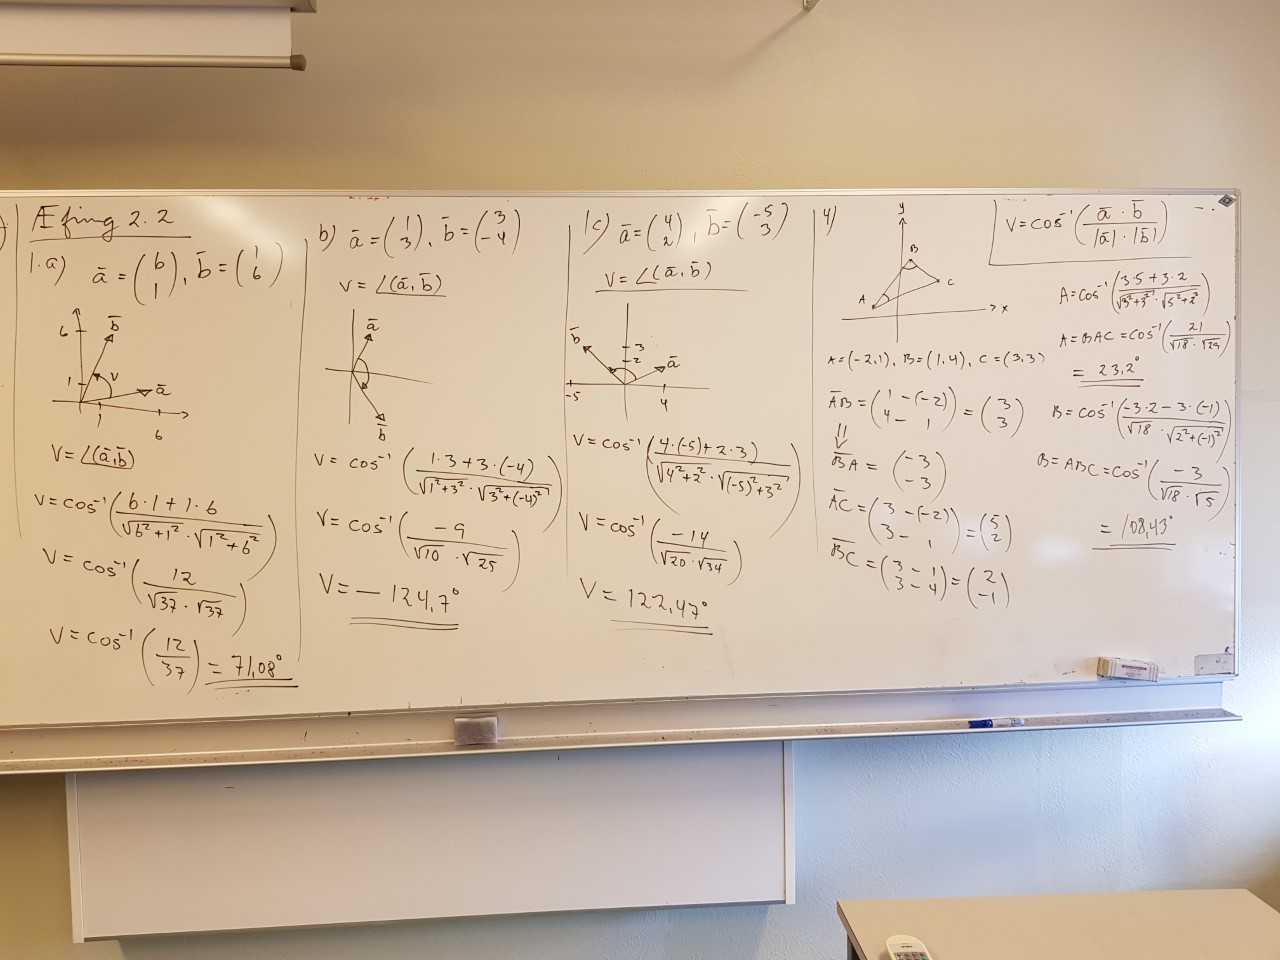 Æfing 2.2
1.a) ā = (6 1), b̄ = (1 6)
6
b̄
1
v
ā
1
6
V = ∠(ā,b̄)
V = cos⁻¹((6·1+1·6)/(√(6²+1²)·√(1²+6²)))
V = cos⁻¹(12/(√37·√37))
V = cos⁻¹(12/37) = 71,08°
b) ā = (1 3), b̄ = (3 -4)
V = ∠(ā,b̄)
ā
b̄
V = cos⁻¹((1·3+3·(-4))/(√(1²+3²)·√(3²+(-4)²)))
V = cos⁻¹(-9/(√10·√25))
V = -124,7°
1c) ā = (4 2), b̄ = (-5 3)
V = ∠(ā,b̄)
b̄
3
2
ā
-5
4
V = cos⁻¹((4·(-5)+2·3)/(√(4²+2²)·√((-5)²+3²)))
V = cos⁻¹(-14/(√20·√34))
V = 122,47°
4)
y
B
C
A
x
A=(-2,1), B=(1,4), C=(3,3)
A̅B̅ = (1-(-2) 4-1) = (3 3)
⇓
B̅A = (-3 -3)
A̅C = (3-(-2) 3-1) = (5 2)
B̅C = (3-1 3-4) = (2 -1)
V = cos⁻¹((ā·b̄)/(|ā|·|b̄|))
A = cos⁻¹((3·5+3·2)/(√(3²+3²)·√(5²+2²)))
A = BAC = cos⁻¹(21/(√18·√29))
= 23,2°
B = cos⁻¹((-3·2-3·(-1))/(√18·√(2²+(-1)²)))
B = ABC = cos⁻¹(-3/(√18·√5))
= 108,43°